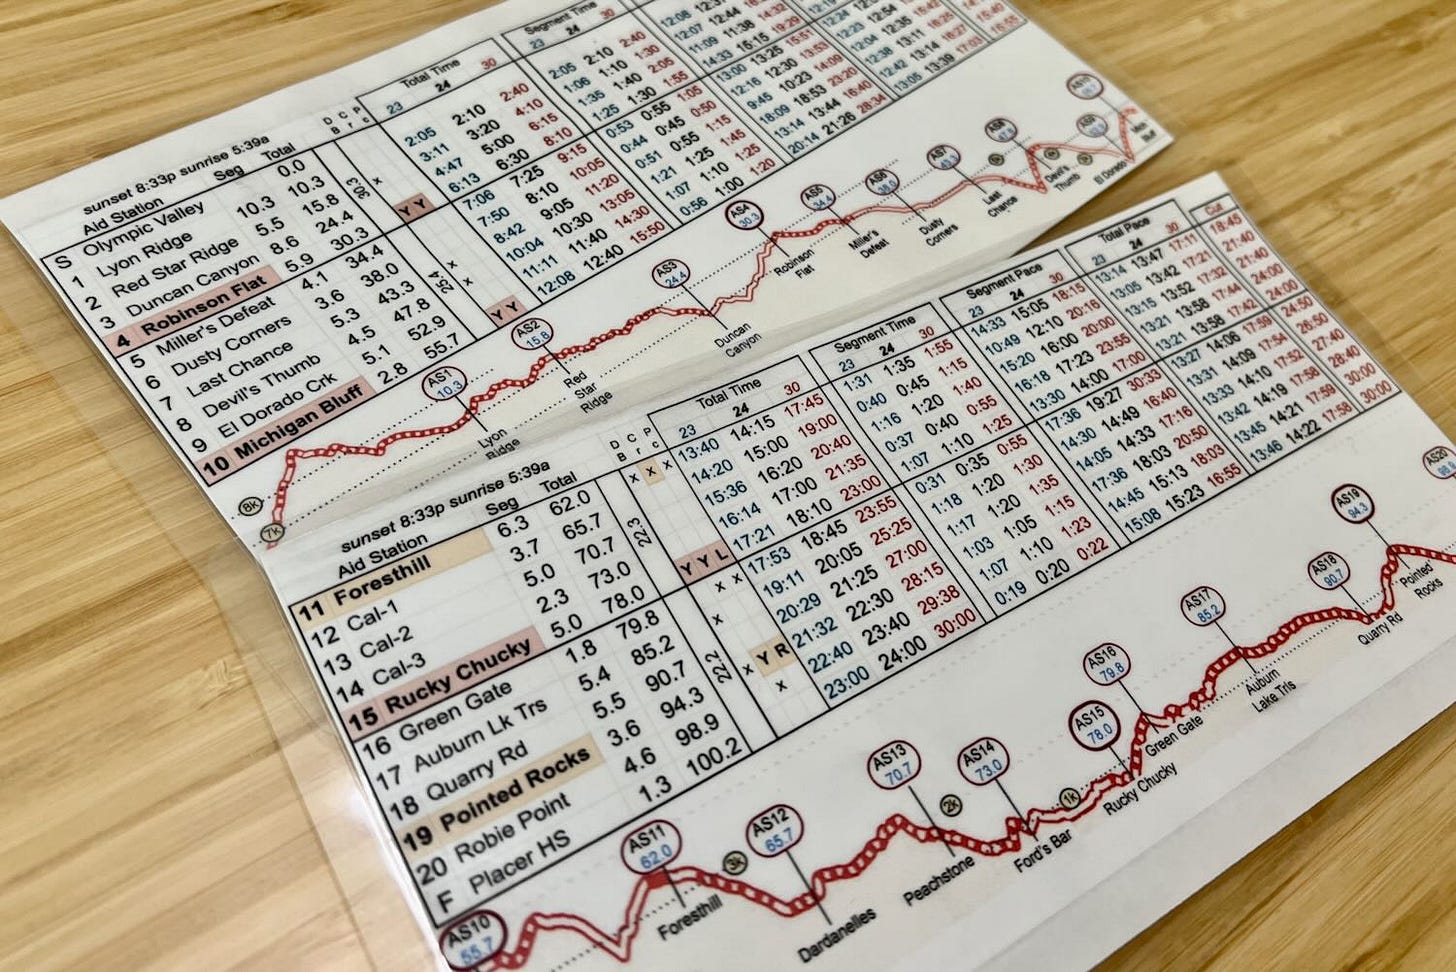 sunset 8:33p sunrise 5:39a
Aid Station Seg Total D B C r P c Total Time 23 24 30 Segment Time 23 24 30
S Olympic Valley 0.0
1 Lyon Ridge 10.3 10.3 2:05 2:10 2:40 2:05 2:10 2:40 12:08
2 Red Star Ridge 5.5 15.8 3:11 3:20 4:10 1:06 1:10 1:30 12:07 12:44
3 Duncan Canyon 8.6 24.4 30.3 x 4:47 5:00 6:15 1:35 1:40 2:05 11:09 11:38 14:32
4 Robinson Flat 5.9 30.3 Y Y 6:13 6:30 8:10 1:25 1:30 1:55 14:33 15:15 19:29
5 Miller's Defeat 4.1 34.4 7:06 7:25 9:15 0:53 0:55 1:05 13:00 13:25 15:51
6 Dusty Corners 3.6 38.0 7:50 8:10 10:05 0:44 0:45 0:50 12:16 12:30 13:53
7 Last Chance 5.3 43.3 x 8:42 9:05 11:20 0:51 0:55 1:15 9:45 10:23 14:09
8 Devil's Thumb 4.5 47.8 25.4 x 10:04 10:30 13:05 1:21 1:25 1:45 18:09 18:53 23:20
9 El Dorado Crk 5.1 52.9 11:11 11:40 14:30 1:07 1:10 1:25 13:14 13:44 16:40 12:42 13:14 16:27
10 Michigan Bluff 2.8 55.7 Y Y 12:08 12:40 15:50 0:56 1:00 1:20 20:14 21:26 28:34 13:05 13:39 17:03
8k
7k
AS1 10.3
Lyon Ridge
AS2 15.8
Red Star Ridge
AS3 24.4
Duncan Canyon
AS4 30.3
Robinson Flat
AS5 34.4
Miller's Defeat
AS6 38.0
Dusty Corners
AS7 43.3
Last Chance
Devil's Thumb
El Dorado
sunset 8:33p sunrise 5:39a
Aid Station Seg Total D B C r P c Total Time 23 24 30 Segment Time 23 24 30 Segment Pace 23 24 30 Total Pace 23 24 30 Cut
11 Foresthill 6.3 62.0 x x x 13:40 14:15 17:45 1:31 1:35 1:55 14:33 15:05 18:15 13:14 13:47 17:11 18:45
12 Cal-1 3.7 65.7 14:20 15:00 19:00 0:40 0:45 1:15 10:49 12:10 20:16 13:05 13:42 17:21
13 Cal-2 5.0 70.7 22.3 15:36 16:20 20:40 1:16 1:20 1:40 15:20 16:00 20:00 13:15 13:52 17:32 21:40
14 Cal-3 2.3 73.0 16:14 17:00 21:35 0:37 0:40 0:55 16:18 17:23 23:55 13:21 13:58 17:44
15 Rucky Chucky 5.0 78.0 Y Y L 17:21 18:10 23:00 1:07 1:10 1:25 13:30 14:00 17:00 13:21 13:58 17:42 24:00
16 Green Gate 1.8 79.8 x x 17:53 18:45 23:55 0:31 0:35 0:55 17:36 19:27 30:33 13:27 14:06 17:59 24:50
17 Auburn Lk Trs 5.4 85.2 x 19:11 20:05 25:25 1:18 1:20 1:30 14:30 14:49 16:40 13:31 14:09 17:54 26:50
18 Quarry Rd 5.5 90.7 22.2 20:29 21:25 27:00 1:17 1:20 1:35 14:05 14:33 17:16 13:33 14:10 17:52 27:40
19 Pointed Rocks 3.6 94.3 x Y R 21:32 22:30 28:15 1:03 1:05 1:15 17:36 18:03 20:50 13:42 14:19 17:58 28:40
20 Robie Point 4.6 98.9 x 22:40 23:40 29:38 1:07 1:10 1:23 14:45 15:13 18:03 13:45 14:21 17:59 30:00
F Placer HS 1.3 100.2 23:00 24:00 30:00 0:19 0:20 0:22 15:08 15:23 16:55 13:46 14:22 17:58 30:00
AS10 55.7
AS11 62.0
Foresthill
3k
AS12 65.7
Dardanelles
AS13 70.7
Peachstone
2k
AS14 73.0
Ford's Bar
1k
AS15 78.0
Rucky Chucky
AS16 79.8
Green Gate
AS17 85.2
Auburn Lake Trls
AS18 90.7
Quarry Rd
AS19 94.3
Pointed Rocks
AS20